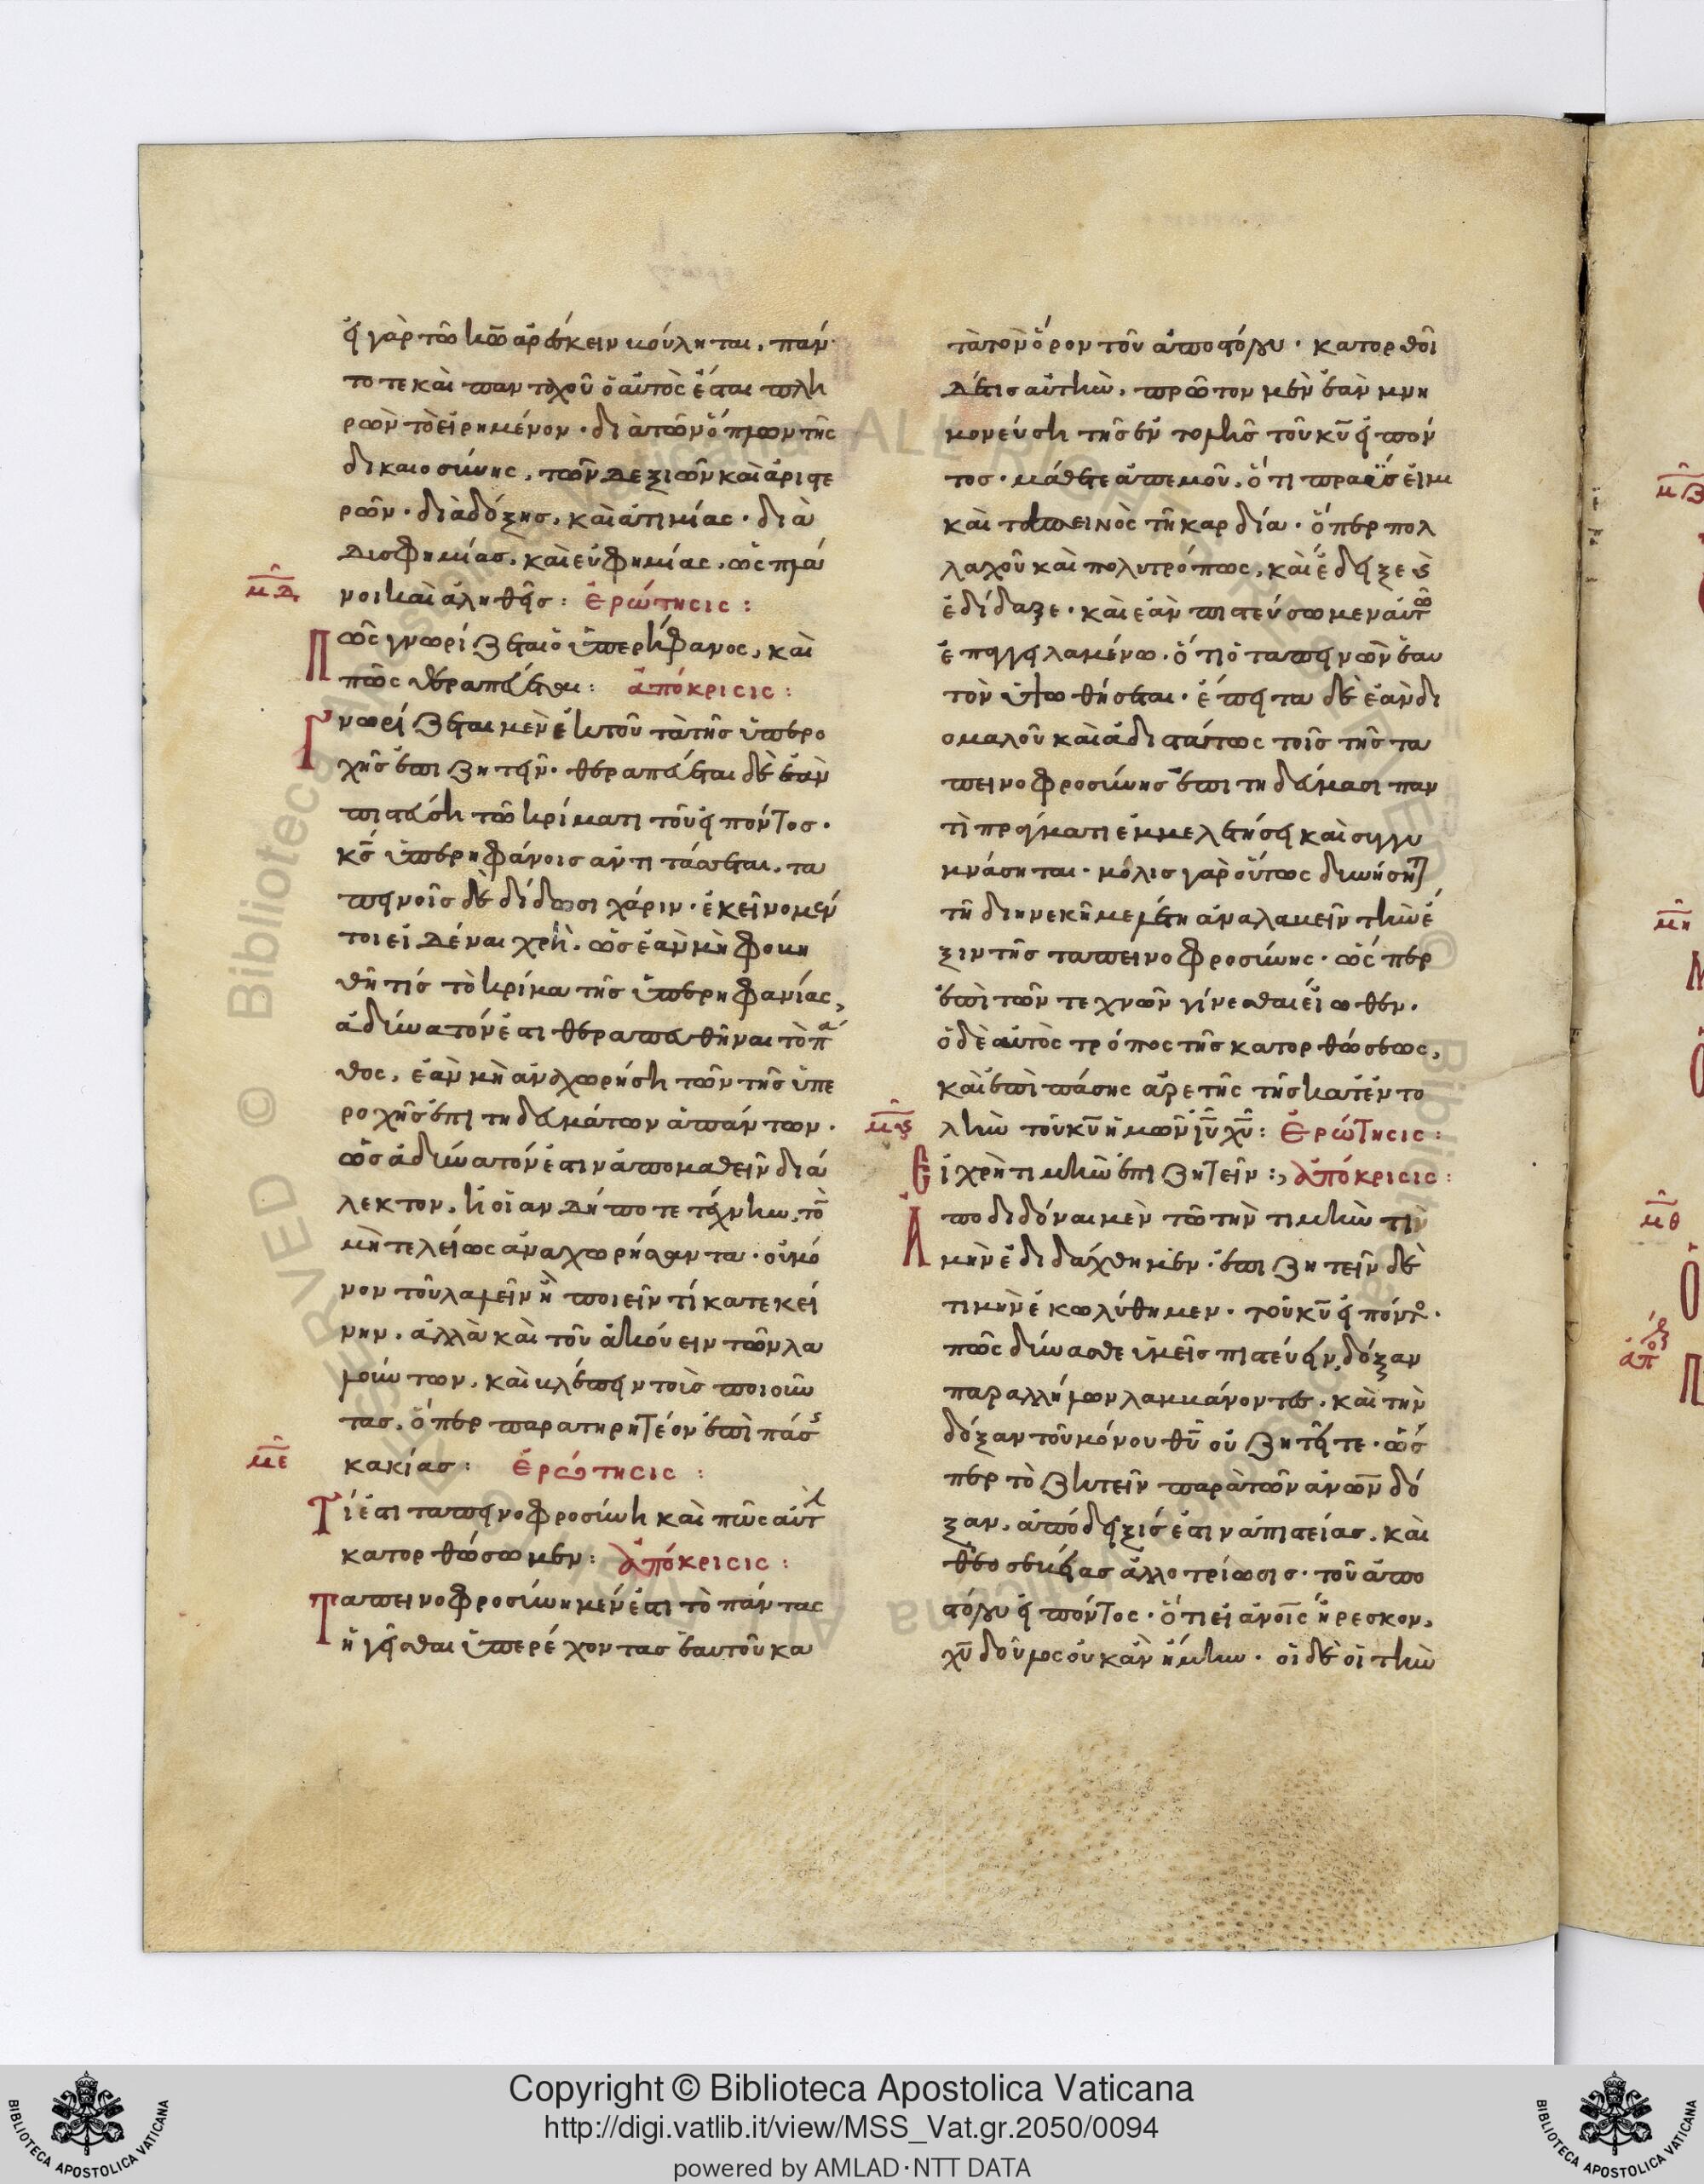 εἰ γὰρ τῶ κῶ ἀρέσκειν βούληται, πάν
τοτε καὶ πανταχοῦ ὁ αὐτὸς ἔσται πλη
ρῶν τὸ εἰρημένον· διὰ τῶν ὅπλων τῆς
δικαιοσύνης, τῶν δεξιῶν καὶ ἀριστε
ρῶν· διὰ δόξης, καὶ ἀτιμίας· διὰ
δισφημίας, καὶ εὐφημίας, ὡς πλά
μδ
νοι καὶ ἀληθεῖς: ἐρώτησις:
Πῶς γνωρίζεται ὁ ὑπερήφανος, καὶ
πῶς θεραπεύεται: ἀπόκρισις:
Γνωρίζεται μὲν ἐκ τοῦ τὰ τῆς ὑπερο
χῆς ἐπιζητεῖν· θεραπεύεται δὲ ἐὰν
πιστεύση τῶ κρίματι τοῦ εἰπόντος·
κς ὑπερηφάνοις ἀντιτάσσεται, τα
πεινοῖς δὲ δίδωσι χάριν· ἐκεῖνο μέν
τοι εἰδέναι χρὴ, ὡς ἐὰν μὴ φοβη
θῆ τίς τὸ κρίμα τῆς ὑπερηφανίας,
ἀδύνατόν ἐστι θεραπευθῆναι τὸ πά
θος, ἐὰν μὴ ἀναχωρήση τῶν τῆς ὑπε
ροχῆς ἐπιτηδευμάτων ἁπάντων·
ὡς ἀδύνατόν ἐστιν ἀπομαθεῖν διά
λεκτον, ἢ οἱανδήποτε τέχνην, τὸ
μὴ τελείως ἀναχωρήσαντα· οὐ μό
νον τοῦ λαλεῖν ἢ ποιεῖν τί κατ εκεί
νην, ἀλλὰ καὶ τοῦ ἀκούειν τῶν λα
λούντων, καὶ βλέπειν τοὺς ποιοῦν
τας, ὅπερ παρατηρητέον ἐπὶ πάσ
με
κακίας: ἐρώτησις:
Τί ἐστι ταπεινοφροσύνη καὶ πῶς αὐτ
κατορθώσωμεν: ἀπόκρισις:
Ταπεινοφροσύνη μέν ἐστι τὸ πάντας
ἡγεῖσθαι ὑπερέχοντας ἑαυτοῦ κα
τὰ τὸν ὅρον τοῦ ἀποστόλου· κατορθοῖ
δέ τις αὐτὴν, πρῶτον μὲν ἐὰν μνη
μονεύση τῆς ἐντολῆς τοῦ κυ εἰπόν
τος· μάθετε ἀπ εμοῦ, ὅτι πραΰς εἰμι
καὶ ταπεινὸς τῆ καρδία· ὅπερ πολ
λαχοῦ καὶ πολυτρόπως, καὶ ἔδειξε καὶ
ἐδίδαξε· καὶ ἐὰν πιστεύσωμεν αὐτῶ
ἐπαγγειλαμένω· ὅτι ὁ ταπεινῶν ἑαυ
τὸν ὑψωθήσεται· ἔπειτα δὲ ἐὰν δι
ομαλοῦ καὶ ἀδιστάτως τοῖς τῆς τα
πεινοφροσύνης ἐπιτηδεύμασι παν
τὶ πράγματι ἐμμελετήσει καὶ συγγυ
μνάσηται· μόλις γὰρ οὕτως δυνήσητ
τῆ διηνεκῆ μελέτη ἀναλαβεῖν τὴν ἕ
ξιν τῆς ταπεινοφροσύνης· ὥς περ
ἐπὶ τῶν τεχνῶν γίνεσθαι εἴωθεν·
ὁ δὲ αὐτὸς τρόπος τῆς κατορθώσεως,
καὶ ἐπὶ πάσης ἀρετῆς τῆς κατ εντο
μς
λὴν τοῦ κυ ἡμῶν ιυ χυ: ἐρώτησις:
Εἰ χρὴ τιμὴν ἐπιζητεῖν: ἀπόκρισις:
Ἀποδιδόναι μὲν τῶ τὴν τιμὴν τὴν
μὴν ἐδιδάχθημεν· ἐπιζητεῖν δὲ
τιμὴν ἐκωλύθημεν· τοῦ κυ εἰπόντος·
πῶς δύνασθε ὑμεῖς πιστεύειν, δόξαν
παρ αλλήλων λαμβάνοντες· καὶ τὴν
δόξαν τοῦ μόνου θυ οὐ ζητεῖτε· ὥσ
περ τὸ ζητεῖν παρὰ τῶν ἀνων δό
ξαν, ἀπόδειξίς ἐστιν ἀπιστείας, καὶ
θεοσεβείας ἀλλοτρίωσις· τοῦ ἀπο
στόλου εἰπόντος· ὅτι εἰ ἀνοις ἤρεσκον,
χυ δοῦλος οὐκ ἂν ἤμην· οἱ δὲ οἱ τὴν
μζ
μη
μθ
Copyright © Biblioteca Apostolica Vaticana
http://digi.vatlib.it/view/MSS_Vat.gr.2050/0094
powered by AMLAD·NTT DATA
BIBLIOTECA APOSTOLICA VATICANA
BIBLIOTECA APOSTOLICA VATICANA